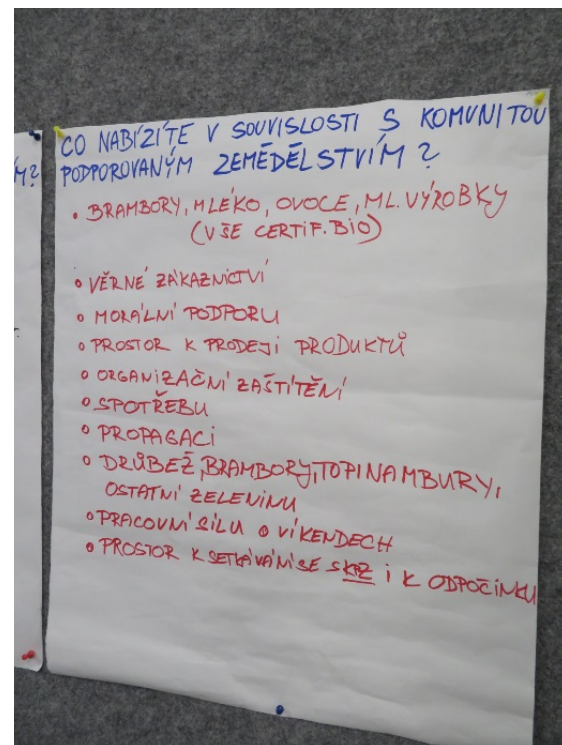 CO NABÍZÍTE V SOUVISLOSTI S KOMUNITOU
PODPOROVANÝM ZEMĚDĚLSTVÍM?
• BRAMBORY, MLÉKO, OVOCE, ML. VÝROBKY
(VŠE CERTIF. BIO)
• VĚRNÉ ZÁKAZNICTVÍ
• MORÁLNÍ PODPORU
• PROSTOR K PRODEJI PRODUKTŮ
• ORGANIZAČNÍ ZAŠTÍTĚNÍ
• SPOTŘEBU
• PROPAGACI
• DRŮBEŽ, BRAMBORY, TOPINAMBURY,
OSTATNÍ ZELENINU
• PRACOVNÍ SÍLU O VÍKENDECH
• PROSTOR K SETKÁVÁNÍ SE S KPZ i K ODPOČINKU